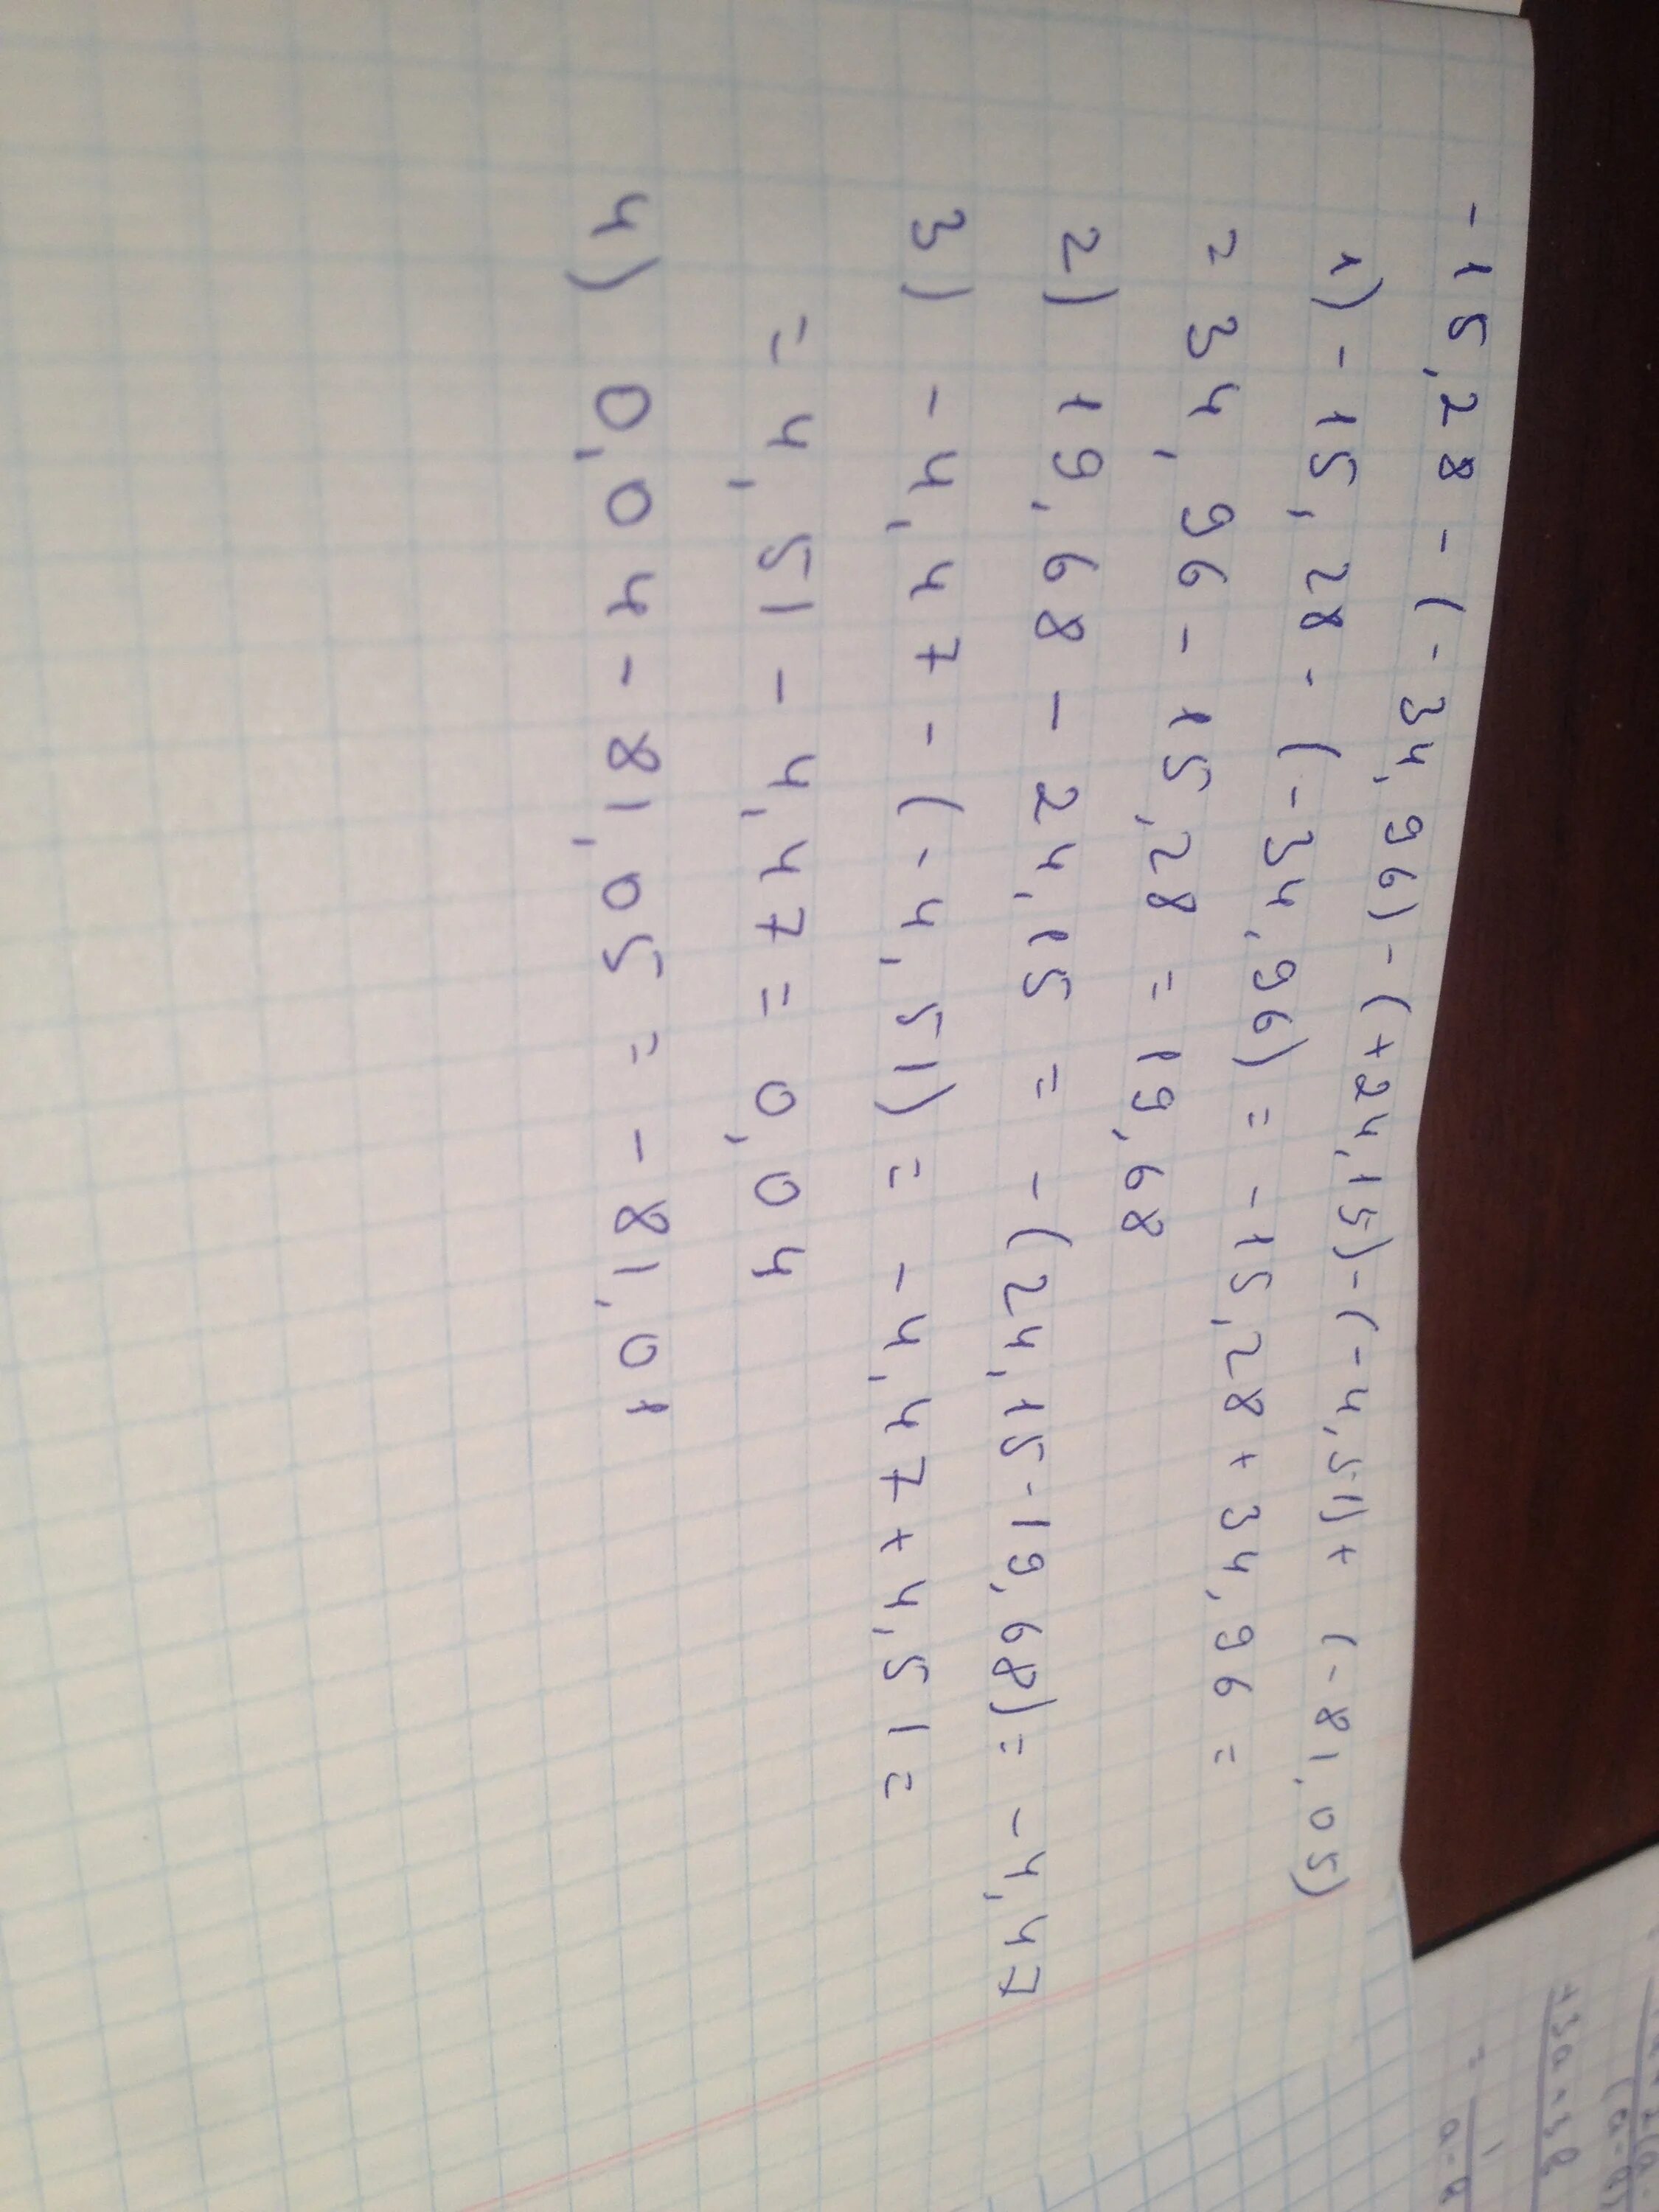 -15,28-(-34,96)-(+24,15)-(-4,51)+(-81,05)
1)-15,28-(-34,96)=-15,28+34,96=
=34,96-15,28=19,68
2) 19,68-24,15=-(24,15-19,68)=-4,47
3) -4,47-(-4,51)=-4,47+4,51=
=4,51-4,47=0,04
4) 0,04-81,05=-81,01
+3a-3b